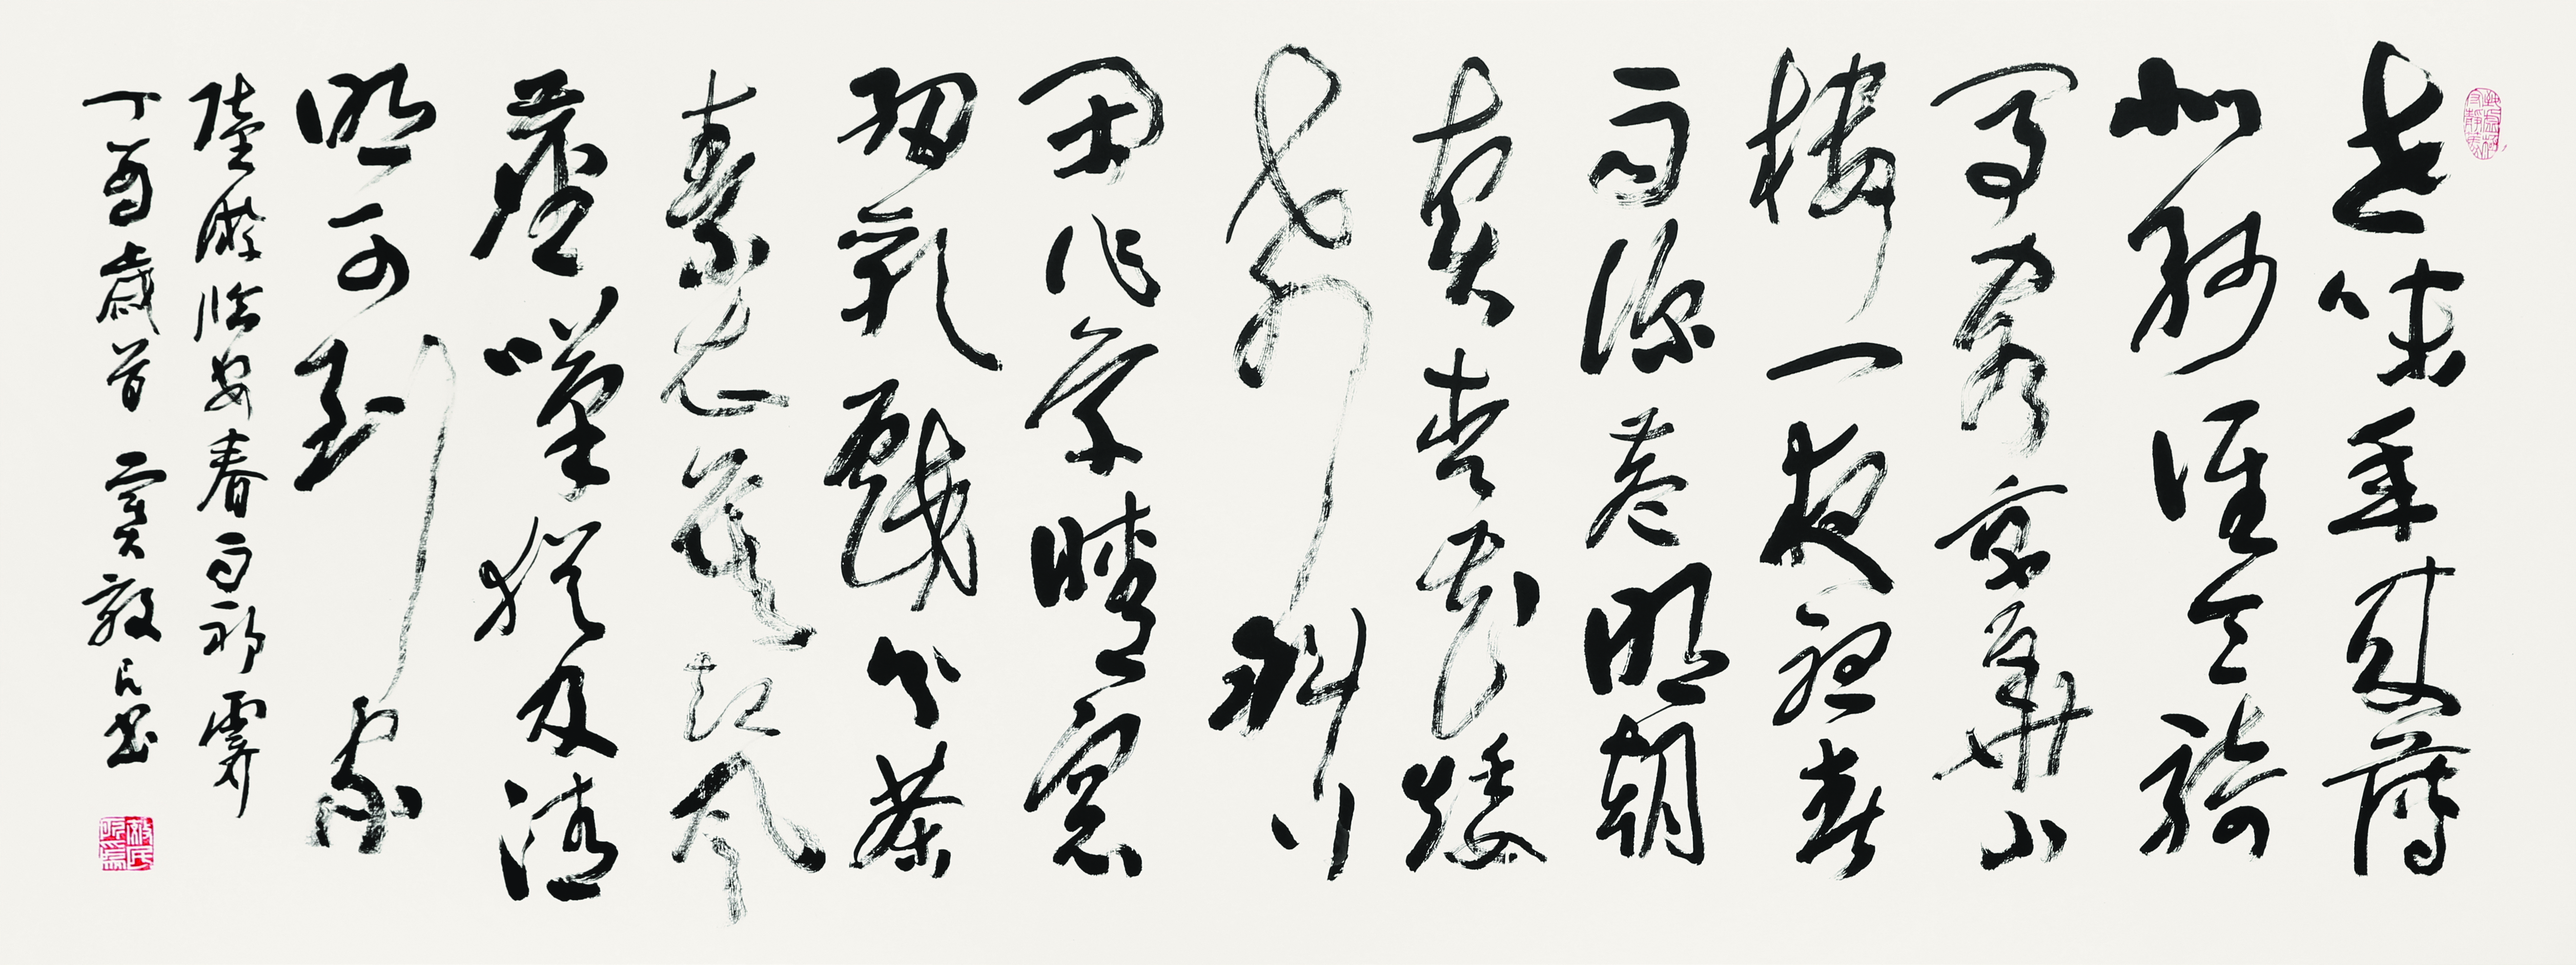 世味年來薄
似紗誰令騎
馬客京華小
樓一夜聽春
雨深巷明朝
賣杏花矮
紙斜行
閑作草晴窗
細乳戲分茶
素衣莫起風
塵嘆猶及清
明可到家
陸游臨安春雨初霽
丁酉歲首 敦民書
敦民